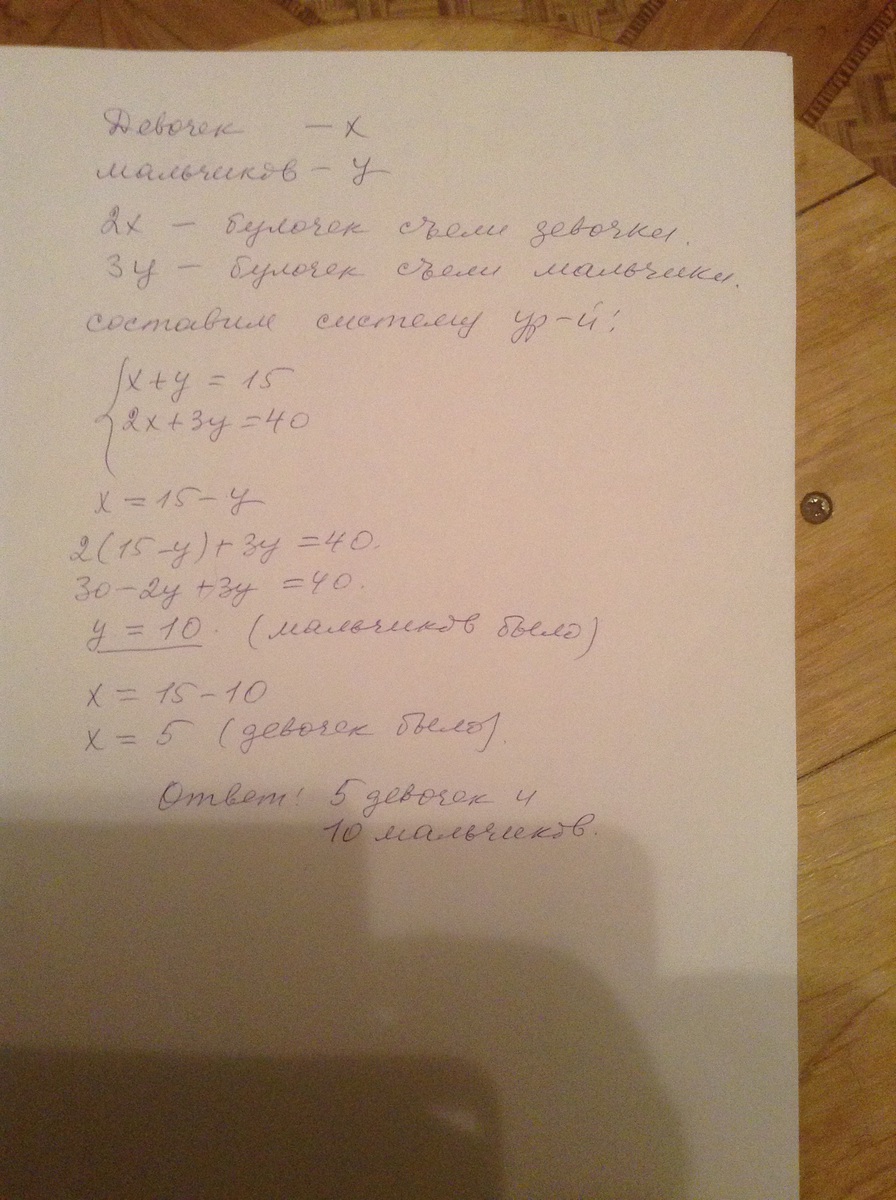 Девочек — x
мальчиков — y
2x — булочек съели девочки.
3y — булочек съели мальчики.
составим систему ур-й:
{ x + y = 15
2x + 3y = 40
x = 15 - y
2(15 - y) + 3y = 40.
30 - 2y + 3y = 40.
y = 10. (мальчиков было)
x = 15 - 10
x = 5 (девочек было).
Ответ: 5 девочек и
10 мальчиков.